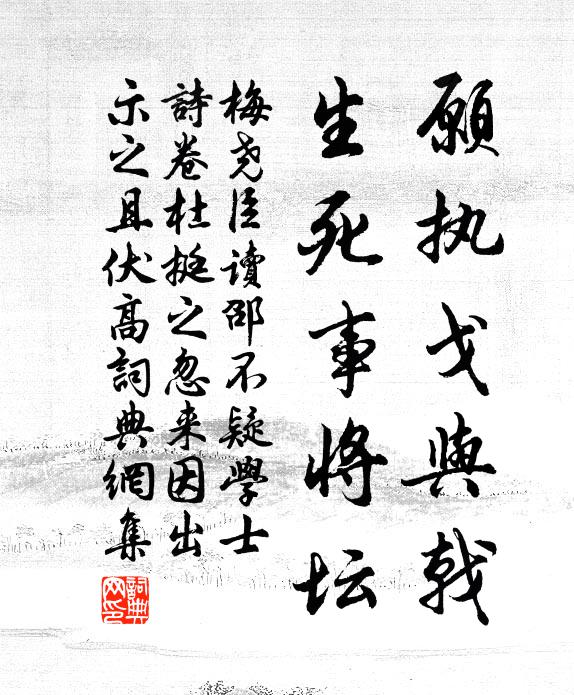 願执戈與戟
生死事將坛
梅尧臣讀邵不疑學士
詩卷杜挺之忽来因出
示之且伏高詞典網集
詞典
网印